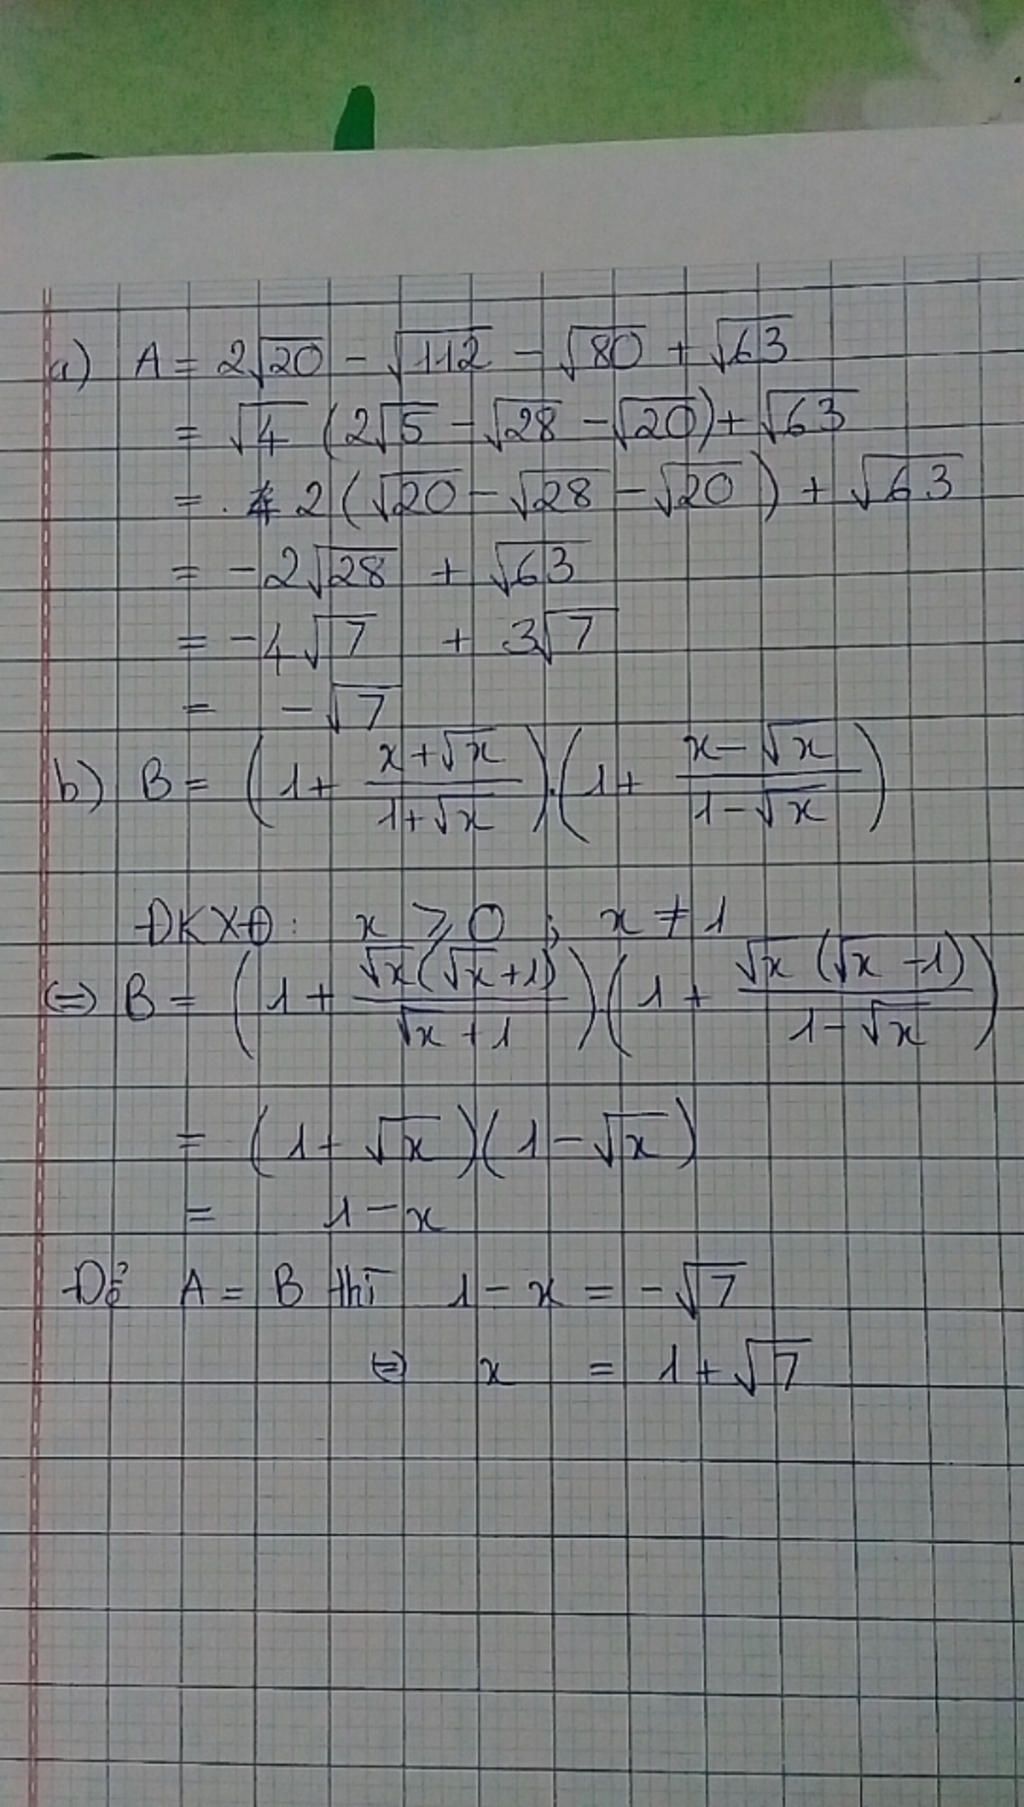 a) A = 2√20 - √112 - √80 + √63
= √4 (2√5 - √28 - √20) + √63
= 2 (√20 - √28 - √20) + √63
= -2√28 + √63
= -4√7 + 3√7
= -√7
b) B = (1 + (x+√x)/(1+√x)).(1 + (x-√x)/(1-√x))
ĐKXĐ: x ⩾ 0 ; x ≠ 1
(=) B = (1 + √x(√x+1)/(√x+1)).(1 + √x(√x-1)/(1-√x))
= (1+√x)(1-√x)
= 1-x
Để A = B thì 1-x = -√7
(=) x = 1+√7